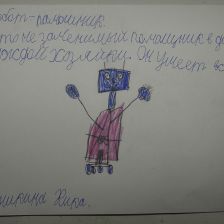 обот-помощник.
то незаменимых помощник в д
ждой хозяйки. Он умеет вс
ширина Кира.